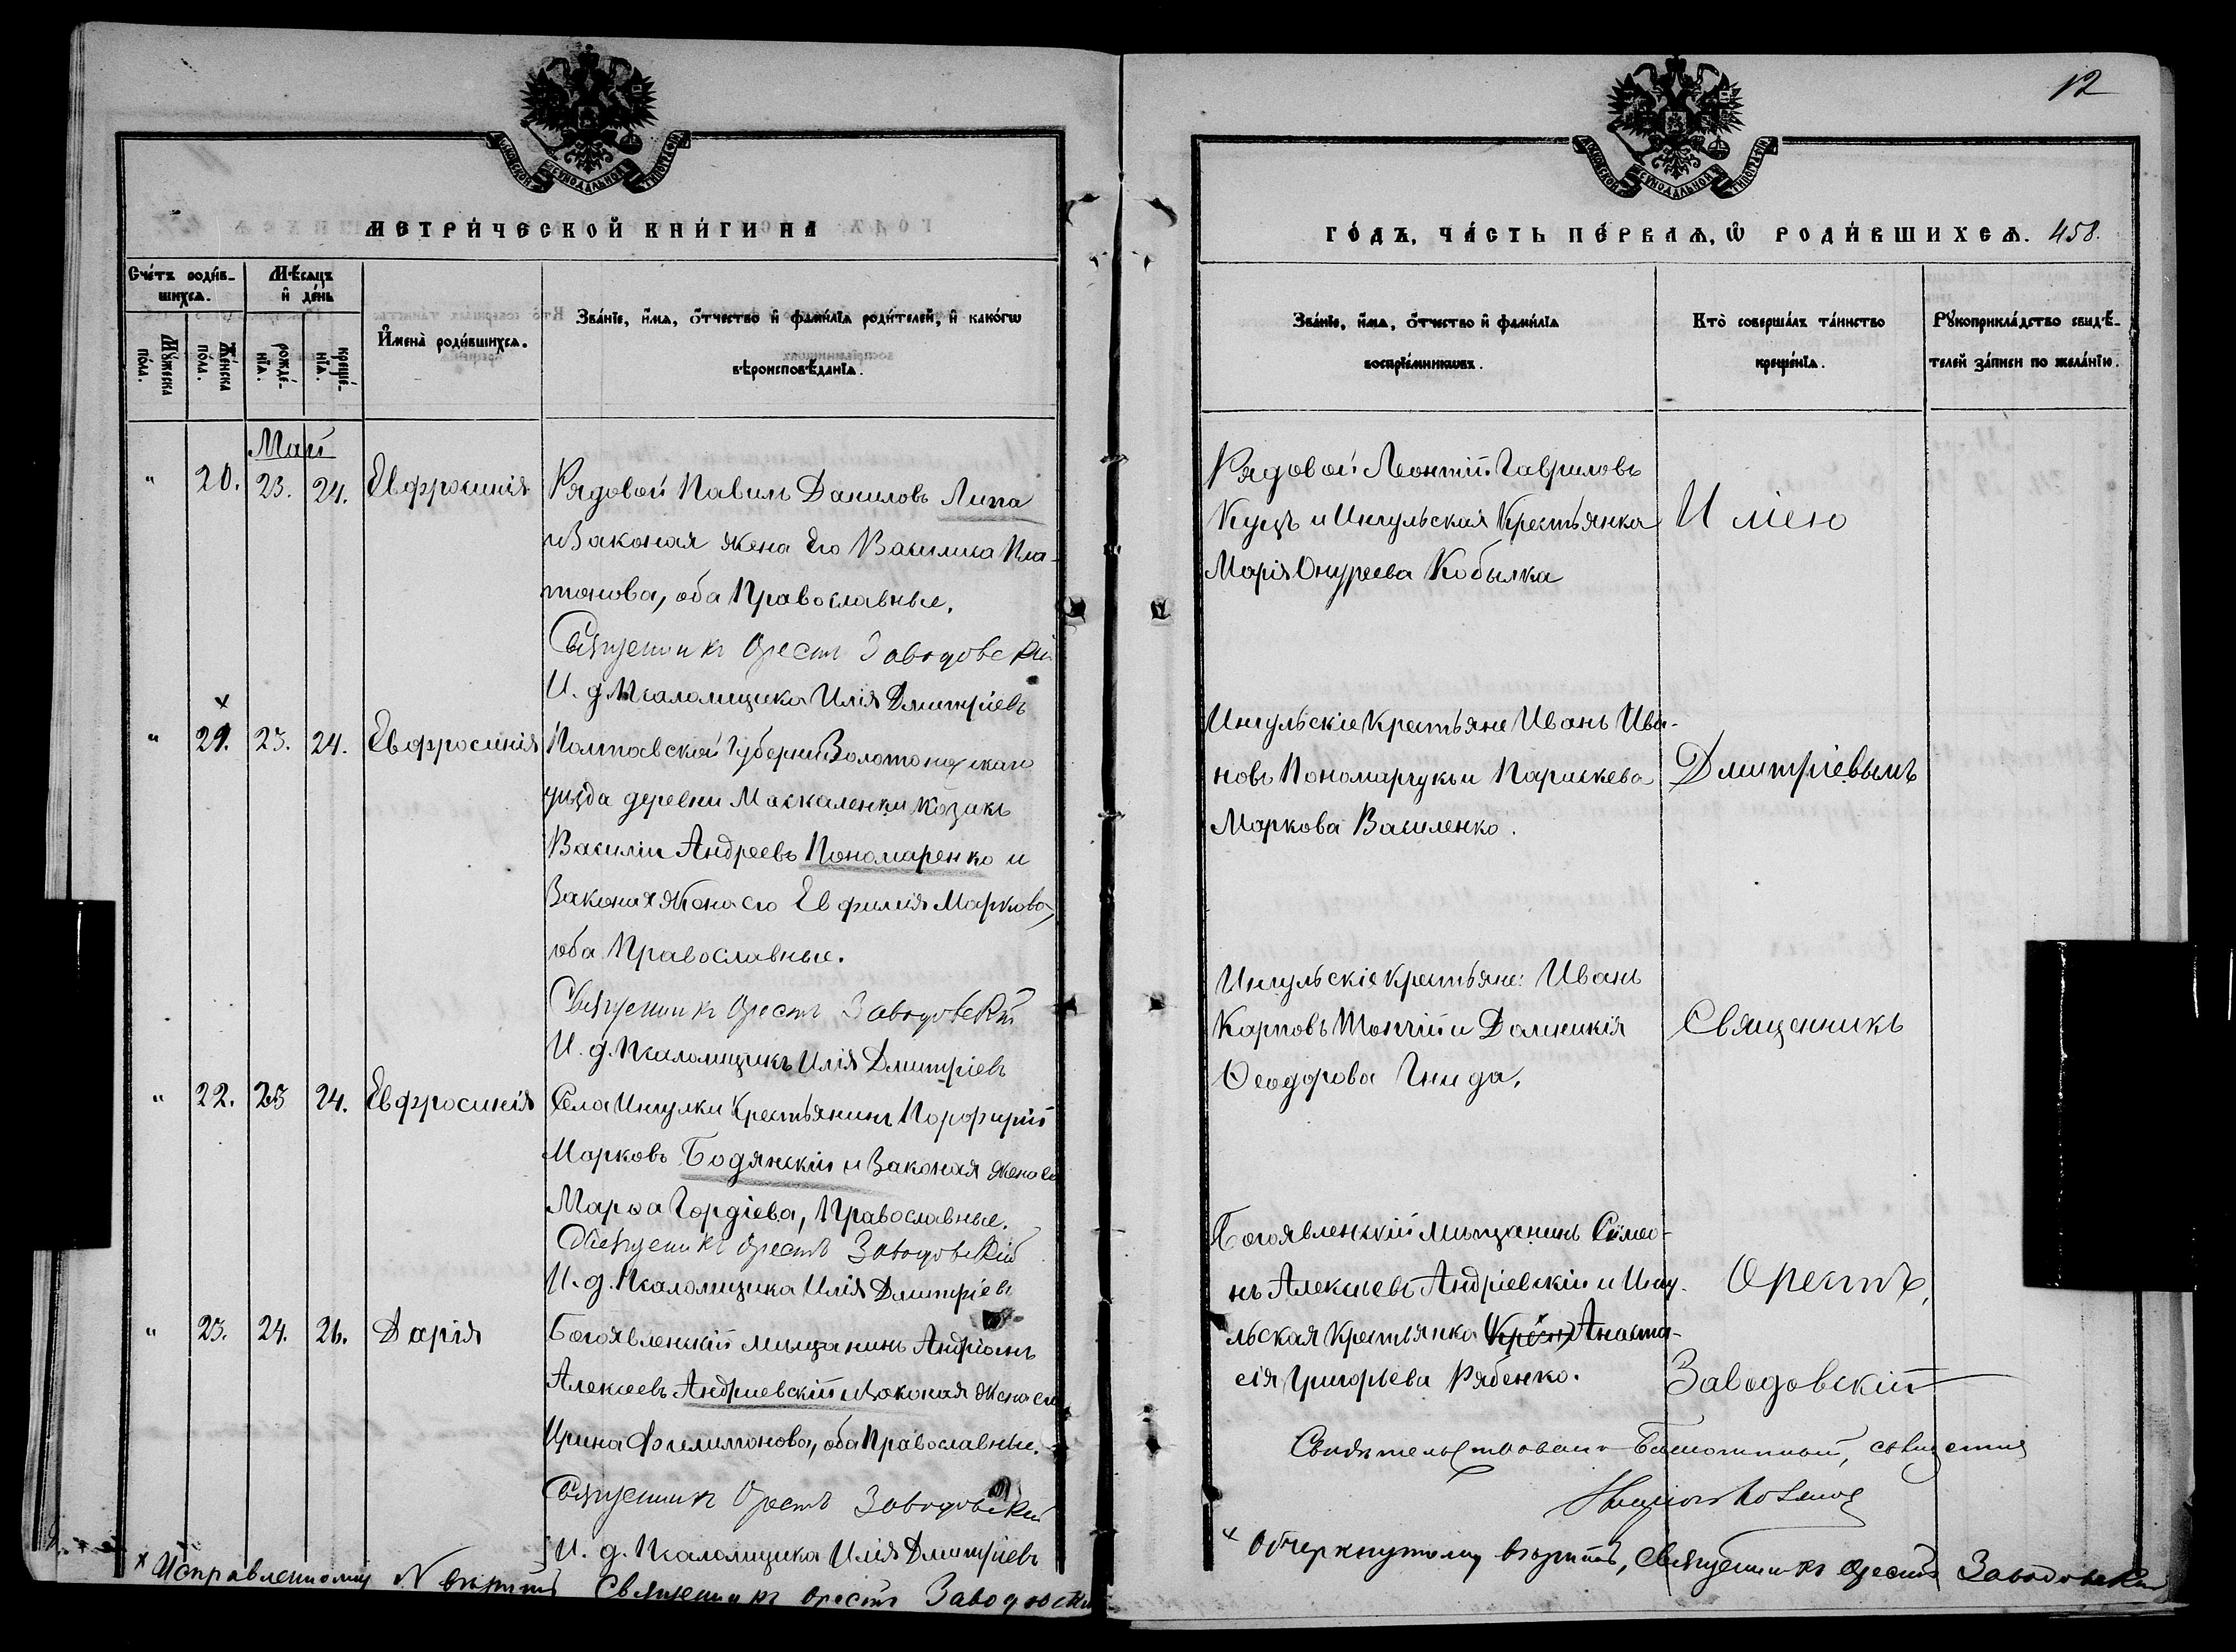 МОСКОВСКОЙ СУНОДАЛЬНОЙ ТИПОГРАФІИ
МЕТРИ́ЧЕСКОЙ КНИ́ГИ НА
Сче́тъ роди́в-
шихсѧ.
Мѣ́сѧцъ
и҆ де́нь
Мꙋ́жеска
по́ла.
Же́нска
по́ла.
рожде́-
нїѧ.
креще́-
нїѧ.
И҆мена̀ роди́вшихсѧ.
Зва́нїе, и҆́мѧ, ѻ҆́тчество и҆ фами́лїѧ роди́телей, и҆ како́гѡ
вѣроисповѣ́данїѧ.
Май
" 20. 23. 24. Евфросинія Рядовой Павилъ Даниловъ Липа
и Законая жена Его Василиса Пла-
тонова, оба Православные.
Священникъ Орестъ Заводовскій
И. д. Псаломщика Илія Дмитріевъ
х
" 21. 23. 24. Евфросинія Полтавской Губерніи Золотоношскаго
уѣзда деревни Маскаленки Козакъ
Василій Андреевъ Пономаренко и
Законая Жена его Евфимія Маркова,
оба Православные.
Священникъ Орестъ Заводовскій
И. д. Псаломщикъ Илія Дмитріевъ
" 22. 23 24. Евфросинія Села Ингулки Крестьянинъ Порфирій
Марковъ Бодянскій и Законая жена его
Марѳа Гордіева, Православные.
Священникъ Орестъ Заводовскій
И. д. Псаломщика Илія Дмитріевъ
" 23. 24. 26. Дарія Богоявленскій мещанинъ Андріанъ
Алексеевъ Андриевскій и Законая Жена его
Ирина Филимонова, оба Православные.
Священникъ Орестъ Заводовскій
И. д. Псаломщика Илія Дмитріевъ
х Исправленному N вѣрить Священникъ Орестъ Заводовскій
12
МОСКОВСКОЙ СУНОДАЛЬНОЙ ТИПОГРАФІИ
ГО́ДЪ, ЧА́СТЬ ПЕ́РВАѦ, Ѡ҆ РОДИ́ВШИХСѦ. 458.
Зва́нїе, и҆́мѧ, ѻ҆́тчество и҆ фами́лїѧ
воспрїе́мникѡвъ.
Кто̀ соверша́лъ та́инство
креще́нїѧ.
Рꙋкоприкла́дство свидѣ́-
телей за́писи по жела́нїю.
Рядовой Леонтій Гавриловъ
Куцъ и Ингульская Крестьянка
Марія Онуреева Кобылка
Ингульскіе Крестьяне Иванъ Ива-
новъ Пономарчукъ и Параскева
Маркова Василенко.
Дмитріевымъ
Ингульскіе Крестьяне: Иванъ
Карповъ Топчій и Домникія
Ѳеодорова Гнида.
Священникъ
Богоявленскій мещанинъ Симео-
нъ Алексеевъ Андріевскій и Ингу-
льская Крестьянка Анаста-
сія Григорьева Рябенко.
Орестъ
Заводовскій
Свидѣтельствовалъ Благочинный, священникъ
х Обчеркнутому вѣрить, Священникъ Орестъ Заводовскій